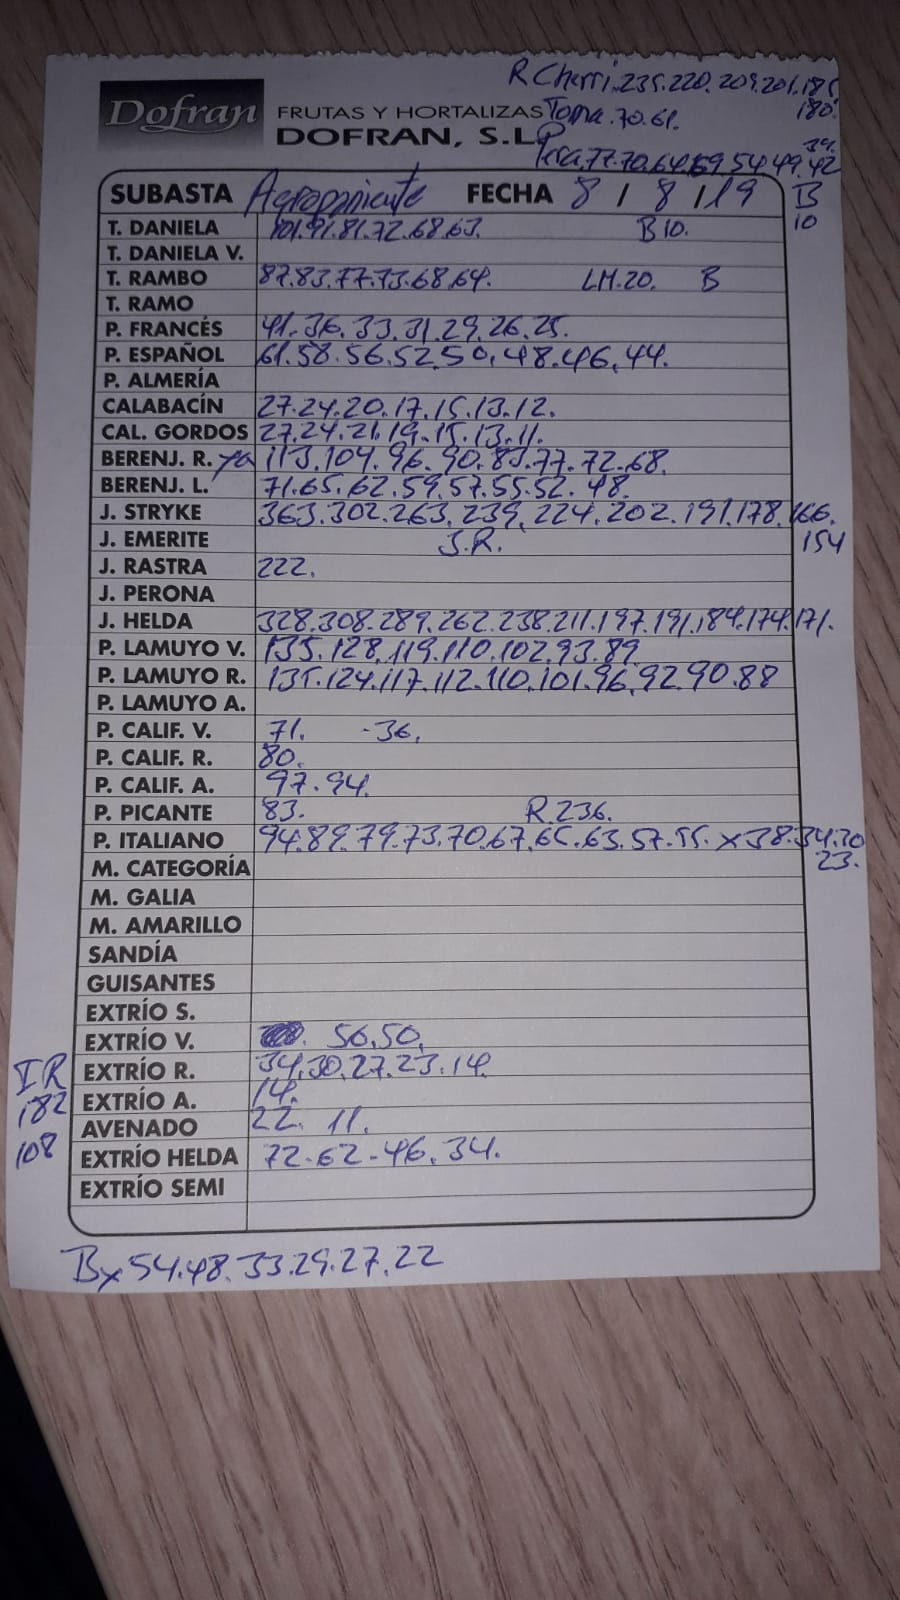 R Cherri.235.220.209.201.185
180.
Dofran FRUTAS Y HORTALIZAS Toma.70.61.
DOFRAN, S.L.
39.
Pera.77.70.64.59.54.49.42
SUBASTA Agroponiente FECHA 8 / 8 / 19 B
10
T. DANIELA 101.91.81.72.68.63. B10.
T. DANIELA V.
T. RAMBO 87.83.77.73.68.64. LM.20. B
T. RAMO
P. FRANCÉS 41.36.33.31.29.26.25.
P. ESPAÑOL 61.58.56.52.50.48.46.44.
P. ALMERÍA
CALABACÍN 27.24.20.17.15.13.12.
CAL. GORDOS 27.24.21.19.15.13.11.
BERENJ. R. ya 113.104.96.90.83.77.72.68.
BERENJ. L. 71.65.62.59.57.55.52.48.
J. STRYKE 363.302.263.239.224.202.191.178.166.
J. EMERITE S.R. 154
J. RASTRA 222.
J. PERONA
J. HELDA 328.308.289.262.238.211.197.191.184.174.171.
P. LAMUYO V. 135.128.119.110.102.93.89
P. LAMUYO R. 135.124.117.112.110.101.96.92.90.88
P. LAMUYO A.
P. CALIF. V. 71. -36.
P. CALIF. R. 80.
P. CALIF. A. 97.94.
P. PICANTE 83. R.236.
P. ITALIANO 94.89.79.73.70.67.65.63.57.55.x38.34.30
23.
M. CATEGORÍA
M. GALIA
M. AMARILLO
SANDÍA
GUISANTES
EXTRÍO S.
EXTRÍO V. 56.50.
IR EXTRÍO R. 34.30.27.23.14.
182 EXTRÍO A. 14.
AVENADO 22. 11.
108 EXTRÍO HELDA 72-62-46.34.
EXTRÍO SEMI
Bx54.48.33.29.27.22